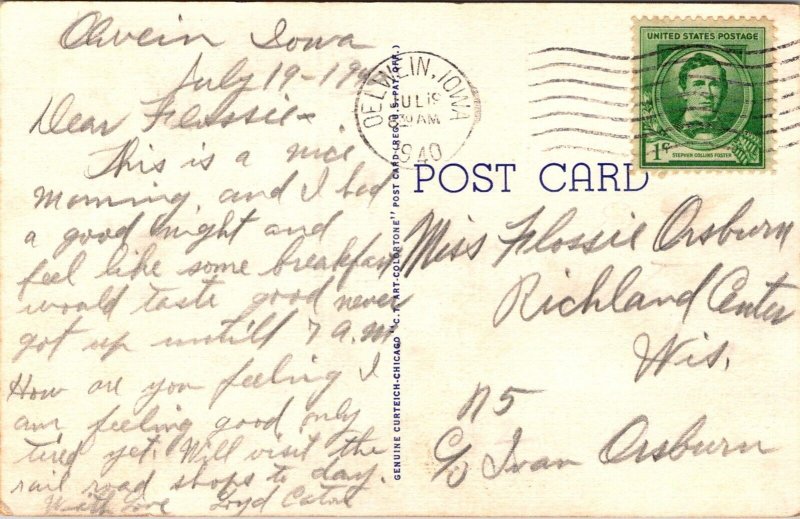 Olwein Iowa
July 19-194
Dear Flossie-
This is a nice
morning, and I had
a good night and
feel like some breakfast
would taste good never
got up untill 7 a.m
How are you feeling I
am feeling good only
tired yet. Will visit the
rail road shops to day.
With Love Loyd
GENUINE CURTEICH-CHICAGO "C.T. ART-COLORTONE" POST CARD (REG. U.S. PAT. OFF.)
OELWEIN, IOWA
JUL 19
AM
1940
UNITED STATES POSTAGE
1¢
STEPHEN COLLINS FOSTER
POST CARD
Miss Flossie Orsburn
Richland Center
Wis.
R5
c/o Ivan Orsburn